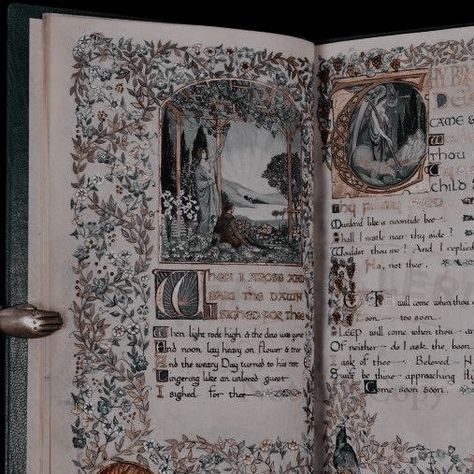 When I arose and
saw the dawn
I sighed for thee
When light rode high & the dew was gone
And noon lay heavy on flower & tree
And the weary Day turned to his rest
Lingering like an unloved guest
I sighed for thee
Thy Br
De
came &
Thou
Thy
child
Thy filmy eyed
Murmured like a noontide bee
Shall I nestle near thy side?
Wouldst thou me? And I replied
No, not thee.
will come when thou
Soon too soon
Sleep will come when thou a
Of neither do I ask the boon
I ask of thee Beloved N
Swift be thine approaching fl
Come soon soon